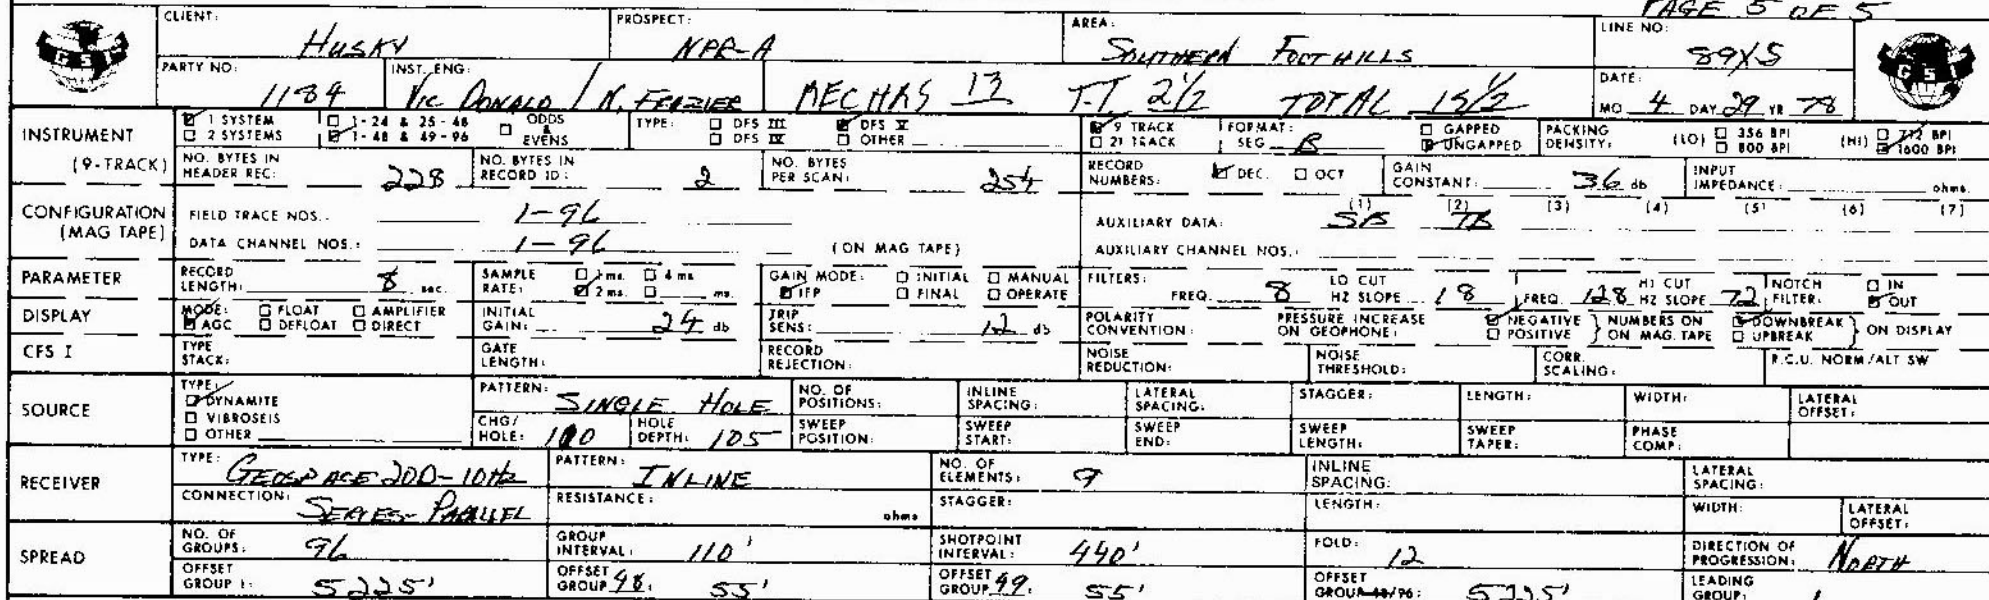 PAGE 5 OF 5
GSI CLIENT: HUSKY PROSPECT: NPR-A AREA: SOUTHERN FOOTHILLS LINE NO: 89X5 GSI
PARTY NO: 1184 INST. ENG: VIC DONALD / N. FRAZIER MECHAS 13 T-T 2 1/2 TOTAL 15 1/2 DATE: MO 4 DAY 29 YR 78
INSTRUMENT 1 SYSTEM 1-24 & 25-48 ODDS & EVENS TYPE: DFS III DFS V 9 TRACK FORMAT: GAPPED PACKING DENSITY: (LO) 356 BPI (HI) 712 BPI
2 SYSTEMS 1-48 & 49-96 DFS IV OTHER 21 TRACK SEG B UNGAPPED 800 BPI 1600 BPI
(9-TRACK) NO. BYTES IN HEADER REC: 228 NO. BYTES IN RECORD ID: 2 NO. BYTES PER SCAN: 254 RECORD NUMBERS: DEC. OCT GAIN CONSTANT: 36 db INPUT IMPEDANCE: ohms.
CONFIGURATION FIELD TRACE NOS.: 1-96 AUXILIARY DATA: (1) SB (2) TB (3) (4) (5) (6) (7)
(MAG TAPE) DATA CHANNEL NOS.: 1-96 (ON MAG TAPE) AUXILIARY CHANNEL NOS.:
PARAMETER RECORD LENGTH: 8 sec. SAMPLE RATE: 1 ms. 4 ms 2 ms. ms. GAIN MODE: INITIAL MANUAL IFP FINAL OPERATE FILTERS: FREQ. 8 LO CUT HZ SLOPE 18 FREQ. 128 HI CUT HZ SLOPE 72 NOTCH FILTER: IN OUT
DISPLAY MODE: FLOAT AMPLIFIER AGC DEFLOAT DIRECT INITIAL GAIN: 24 db TRIP SENS: 12 db POLARITY CONVENTION: PRESSURE INCREASE ON GEOPHONE: NEGATIVE POSITIVE NUMBERS ON ON MAG. TAPE DOWNBREAK UPBREAK ON DISPLAY
CFS I TYPE STACK: GATE LENGTH: RECORD REJECTION: NOISE REDUCTION: NOISE THRESHOLD: CORR. SCALING: R.C.U. NORM/ALT SW
SOURCE TYPE: DYNAMITE VIBROSEIS OTHER PATTERN: SINGLE HOLE NO. OF POSITIONS: INLINE SPACING: LATERAL SPACING: STAGGER: LENGTH: WIDTH: LATERAL OFFSET:
CHG/HOLE: 100 HOLE DEPTH: 105 SWEEP POSITION: SWEEP START: SWEEP END: SWEEP LENGTH: SWEEP TAPER: PHASE COMP:
RECEIVER TYPE: GEOSPACE 20D-10Hz PATTERN: INLINE NO. OF ELEMENTS: 9 INLINE SPACING: LATERAL SPACING:
CONNECTION: SERIES-PARALLEL RESISTANCE: ohms STAGGER: LENGTH: WIDTH: LATERAL OFFSET:
SPREAD NO. OF GROUPS: 96 GROUP INTERVAL: 110' SHOTPOINT INTERVAL: 440' FOLD: 12 DIRECTION OF PROGRESSION: NORTH
OFFSET GROUP 1: 5225' OFFSET GROUP 48: 55' OFFSET GROUP 49: 55' OFFSET GROUP 48/96: 5225' LEADING GROUP: